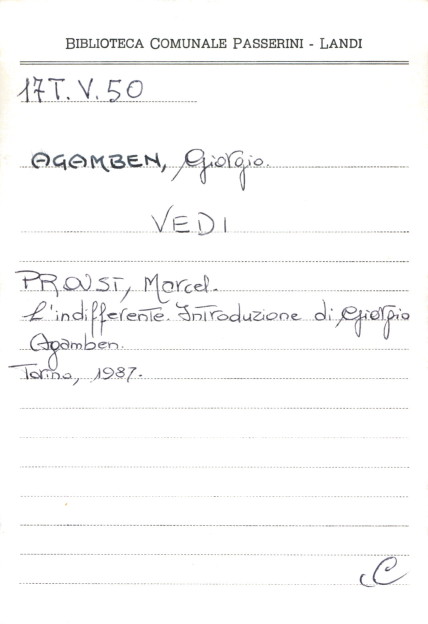 BIBLIOTECA COMUNALE PASSERINI - LANDI
17T.V.50
AGAMBEN, Giorgio.
VEDI
PROUST, Marcel.
L'indifferente. Introduzione di Giorgio
Agamben.
Torino, 1987.
C